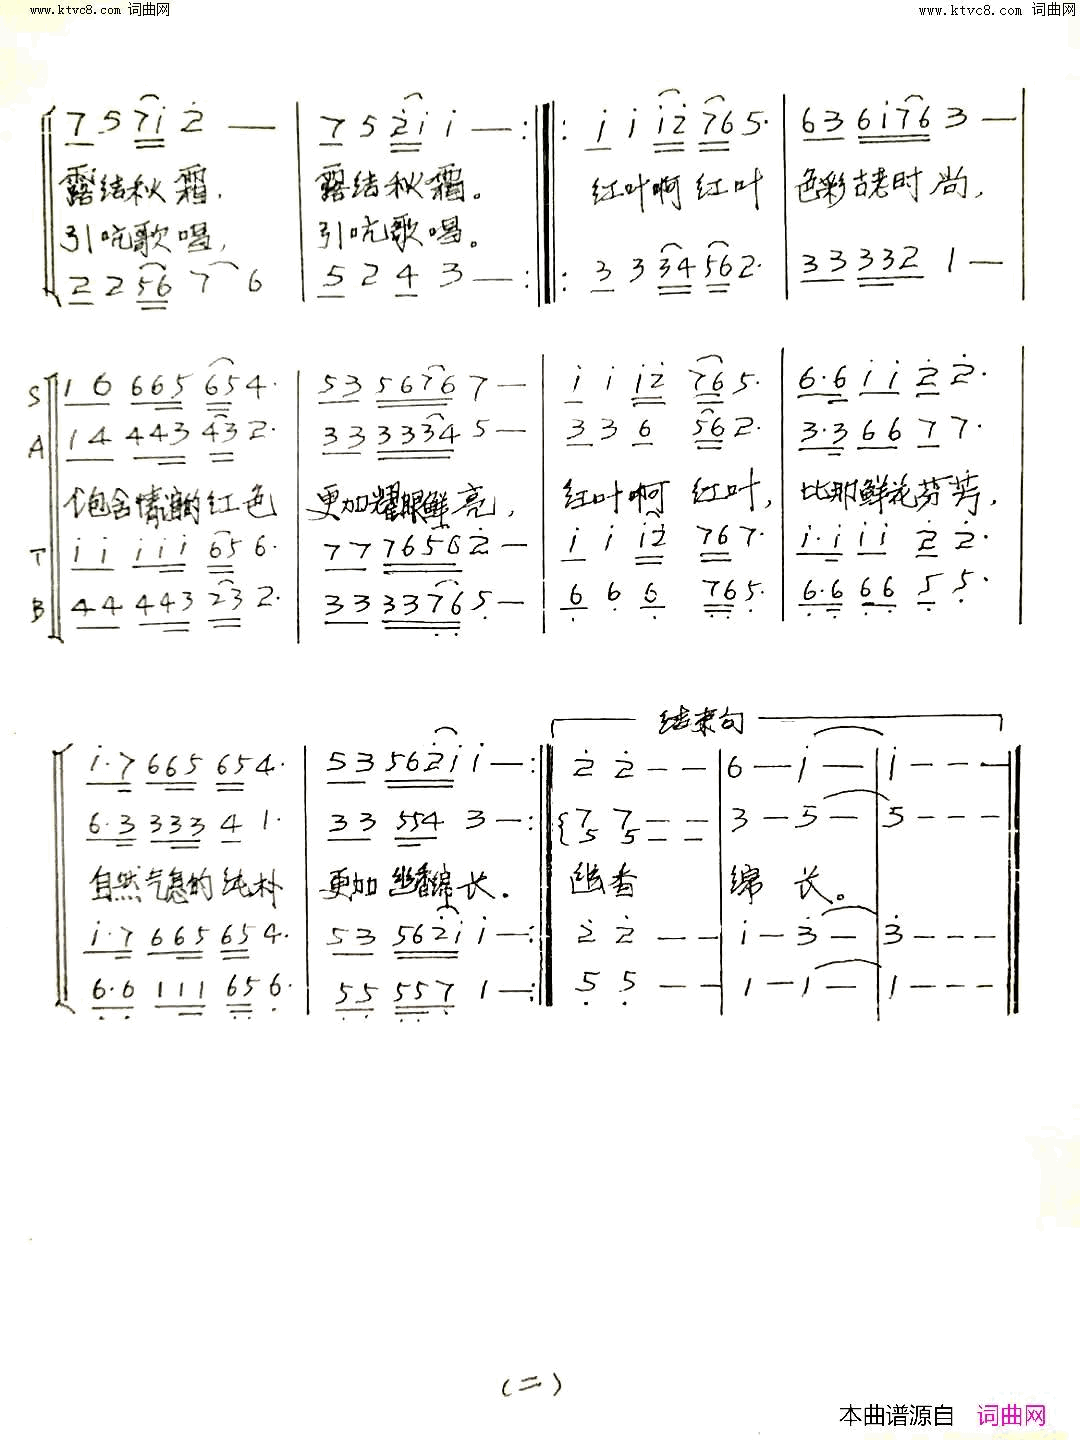 www.ktvc8.com 词曲网
www.ktvc8.com 词曲网
7 5 7i 2 — 7 5 2i i — : : i i i2 76 5· 63 6i76 3 —
露结秋霜， 露结秋霜。 红叶啊 红叶 色彩古老时尚，
引吭歌唱， 引吭歌唱。
2 2 56 7 6 5 2 4 3 — : : 3 3 34 562· 33 332 1 —
S 16 665 654· 53 5676 7 — i i i2 765· 6·6 ii 2 2·
A 14 443 432· 33 3334 5 — 3 3 6 562· 3·3 66 7 7·
饱含情 的红色 更加耀眼鲜亮， 红叶啊 红叶， 比那鲜花芬芳，
T ii iii 656· 77 7656 2 — i i i2 767· i·i ii 2 2·
B 44 443 232· 33 3376 5 — 6 6 6 765· 6·6 66 5 5·
结束句
i·7 665 654· 53 562i i — : 2 2 — — 6 — i — i — — —
6·3 333 4 1· 33 554 3 — : { 7 7 — — 3 — 5 — 5 — — —
5 5 — —
自然气息的纯朴 更加幽香绵长。 幽香 绵 长。
i·7 665 654· 53 562i i — : 2 2 — — i — 3 — 3 — — —
6·6 111 656· 55 557 1 — : 5 5 — — 1 — 1 — 1 — — —
(二)
本曲谱源自 词曲网